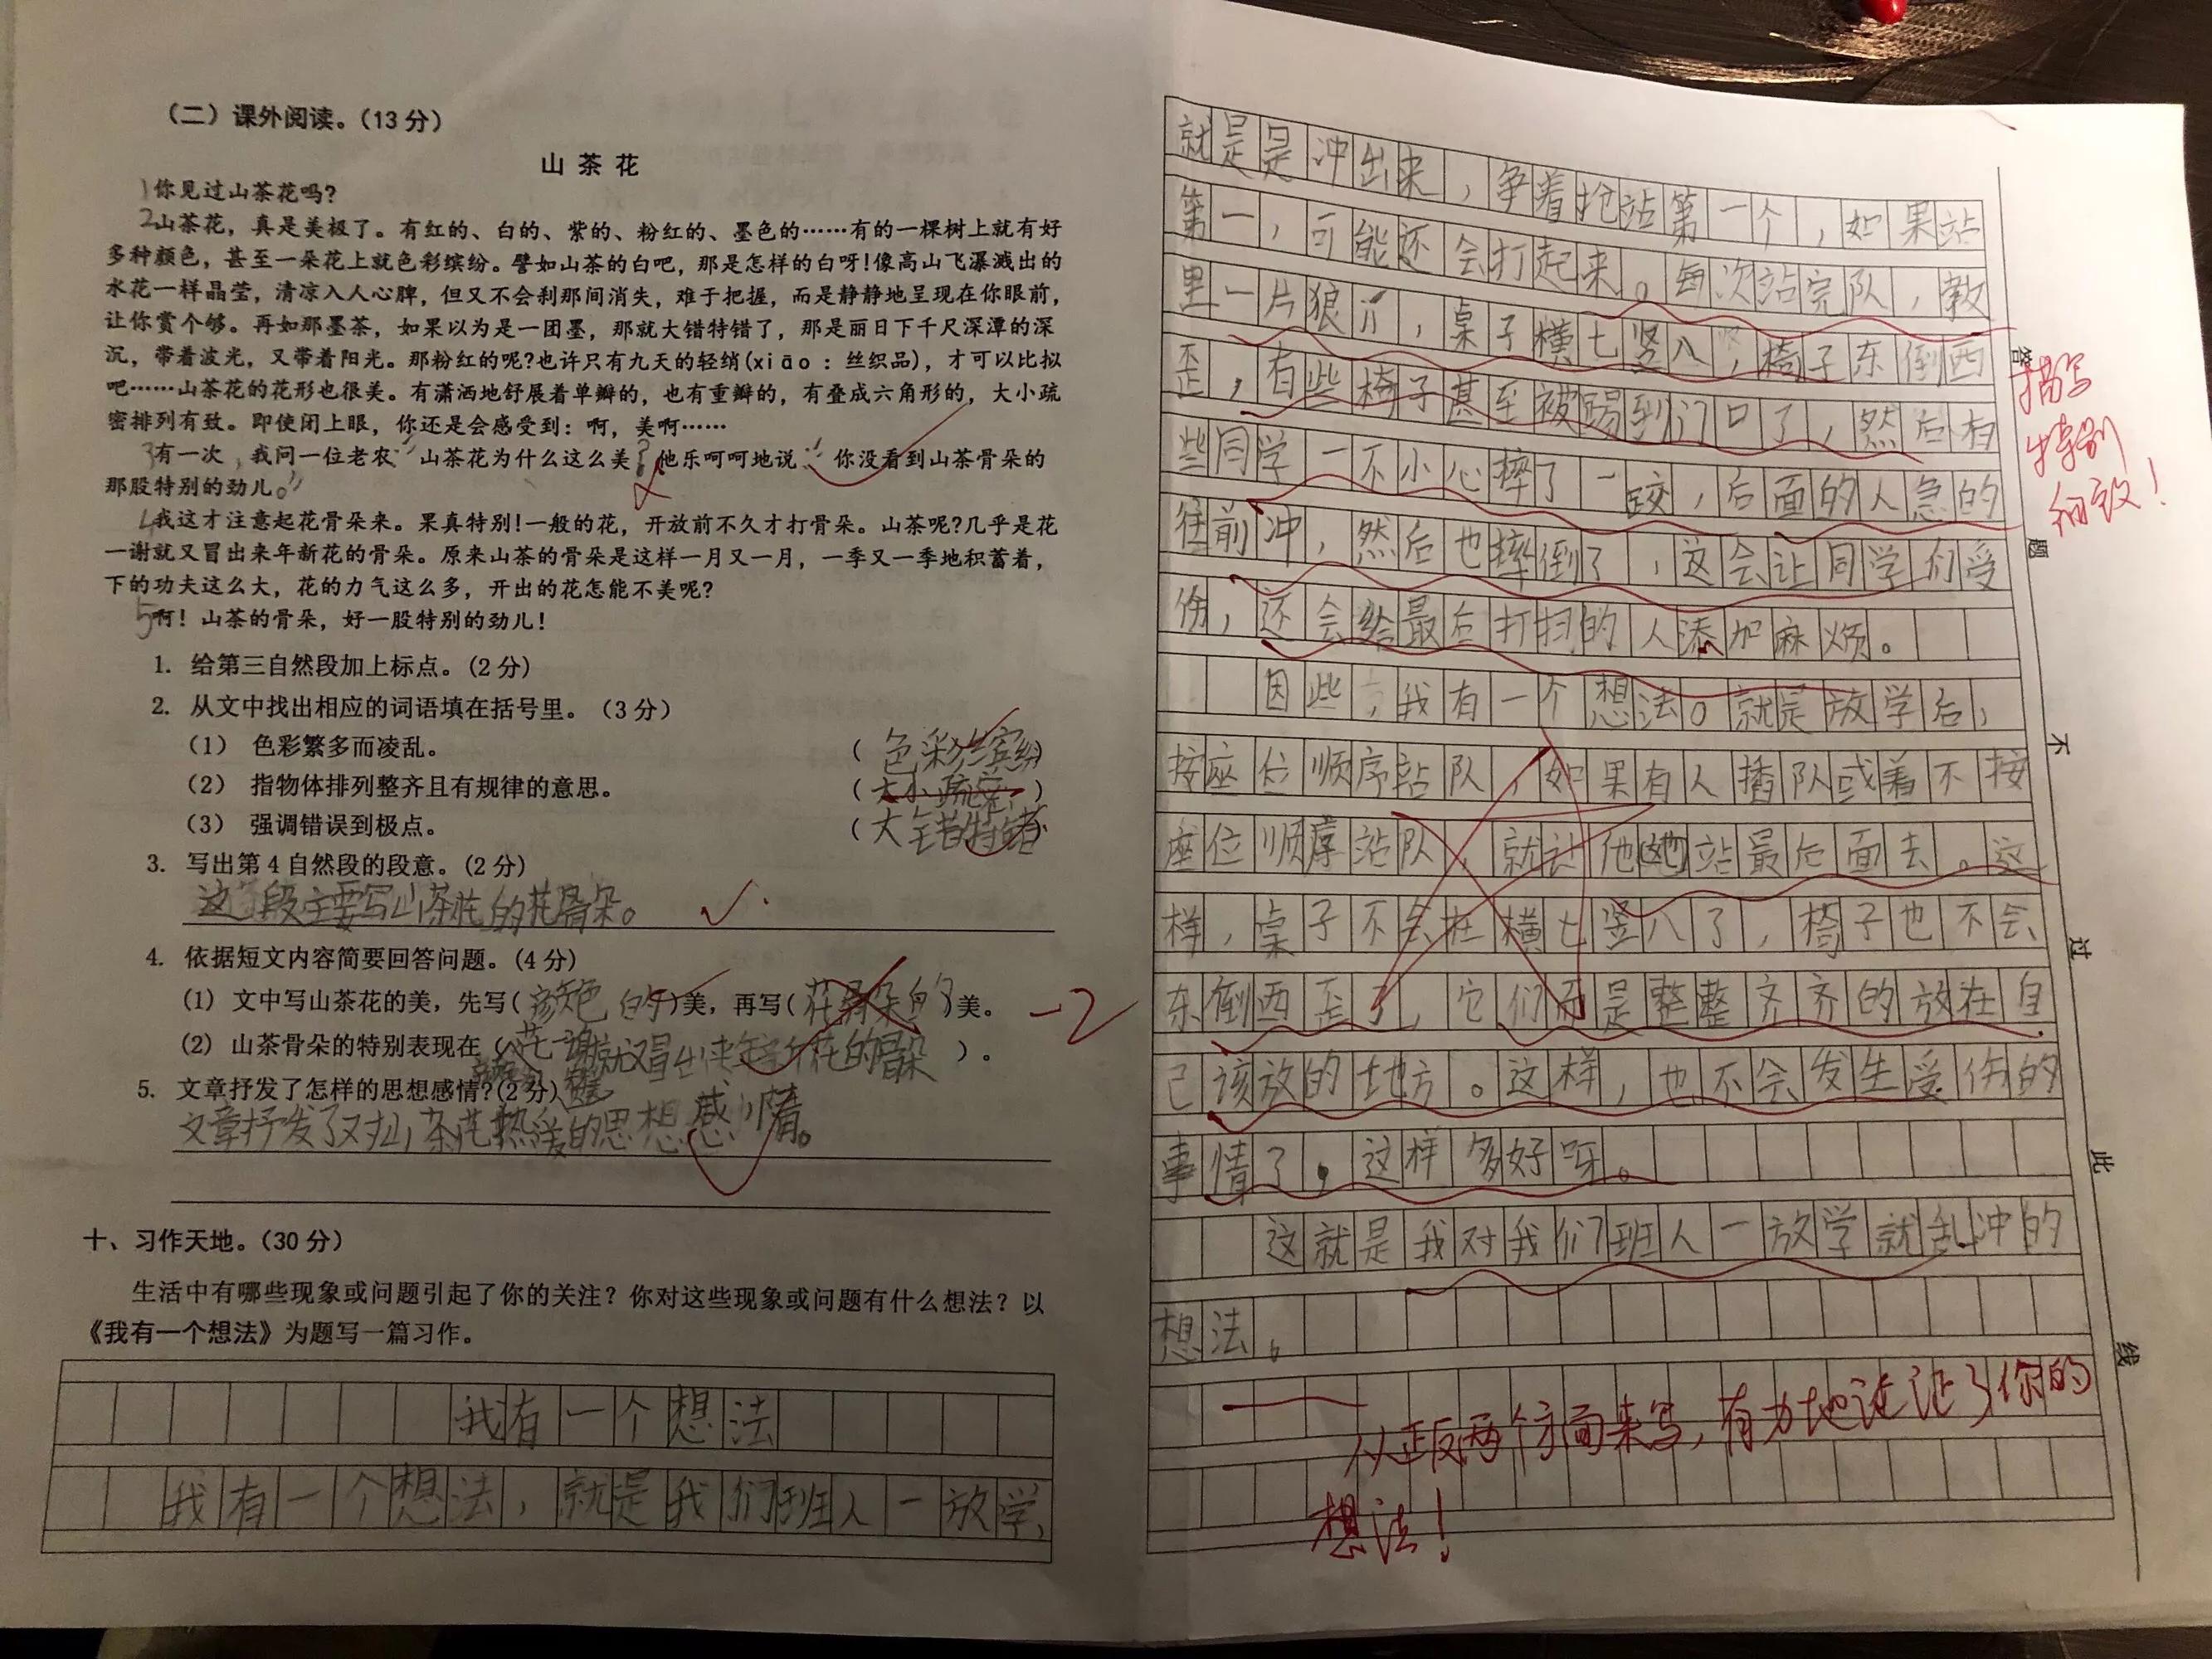 （二）课外阅读。（13分）
山 茶 花
1你见过山茶花吗？
2山茶花，真是美极了。有红的、白的、紫的、粉红的、墨色的……有的一棵树上就有好
多种颜色，甚至一朵花上就色彩缤纷。譬如山茶的白吧，那是怎样的白呀！像高山飞瀑溅出的
水花一样晶莹，清凉入人心脾，但又不会刹那间消失，难于把握，而是静静地呈现在你眼前，
让你赏个够。再如那墨茶，如果以为是一团墨，那就大错特错了，那是丽日下千尺深潭的深
沉，带着波光，又带着阳光。那粉红的呢？也许只有九天的轻绡（xiāo：丝织品），才可以比拟
吧……山茶花的花形也很美。有潇洒地舒展着单瓣的，也有重瓣的，有叠成六角形的，大小疏
密排列有致。即使闭上眼，你还是会感受到：啊，美啊……
3有一次，我问一位老农：“山茶花为什么这么美？他乐呵呵地说：“你没看到山茶骨朵的
那股特别的劲儿。”
4我这才注意起花骨朵来。果真特别！一般的花，开放前不久才打骨朵。山茶呢？几乎是花
一谢就又冒出来年新花的骨朵。原来山茶的骨朵是这样一月又一月，一季又一季地积蓄着，
下的功夫这么大，花的力气这么多，开出的花怎能不美呢？
5啊！山茶的骨朵，好一股特别的劲儿！
1. 给第三自然段加上标点。（2分）
2. 从文中找出相应的词语填在括号里。（3分）
（1） 色彩繁多而凌乱。 （色彩缤纷）
（2） 指物体排列整齐且有规律的意思。 （大小疏密）
（3） 强调错误到极点。 （大错特错）
3. 写出第4自然段的段意。（2分）
这段主要写山茶花的花骨朵。
4. 依据短文内容简要回答问题。（4分）
（1）文中写山茶花的美，先写（颜色的）美，再写（花骨朵的）美。 -2
（2）山茶骨朵的特别表现在（花一谢就又冒出来年新花的骨朵）。
5. 文章抒发了怎样的思想感情？（2分）
文章抒发了对山茶花热爱的思想感情。
十、习作天地。（30分）
生活中有哪些现象或问题引起了你的关注？你对这些现象或问题有什么想法？以
《我有一个想法》为题写一篇习作。
我有一个想法
我有一个想法，就是我们班人一放学，
就是是冲出来，争着抢站第一个，如果站
第一，可能还会打起来。每次站完队，教
里一片狼，桌子横七竖八，椅子东倒西
歪，有些椅子甚至被踢到门口了，然后有
些同学一不小心摔了一跤，后面的人急的
往前冲，然后也摔倒了，这会让同学们受
伤，还会给最后打扫的人添加麻烦。
因些，我有一个想法。就是放学后，
按座位顺序站队，如果有人插队或着不按
座位顺序站队，就让他（她）站最后面去。这
样，桌子不会在横七竖八了，椅子也不会
东倒西歪了，它们而是整整齐齐的放在自
己该放的地方。这样，也不会发生受伤的
事情了，这样多好呀。
这就是我对我们班人一放学就乱冲的
想法。
描写
特别
细致！
从正反两个方面来写，有力地论证了你的
想法！
答
题
不
过
此
线